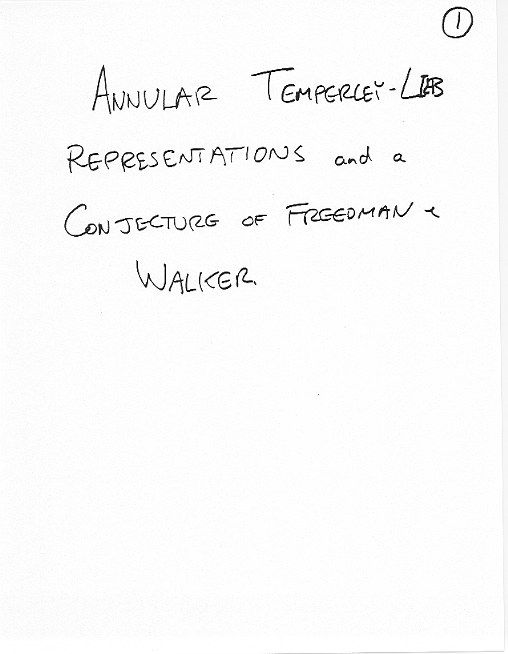 1
ANNULAR TEMPERLEY-LIEB
REPRESENTATIONS and a
CONJECTURE OF FREEDMAN &
WALKER.